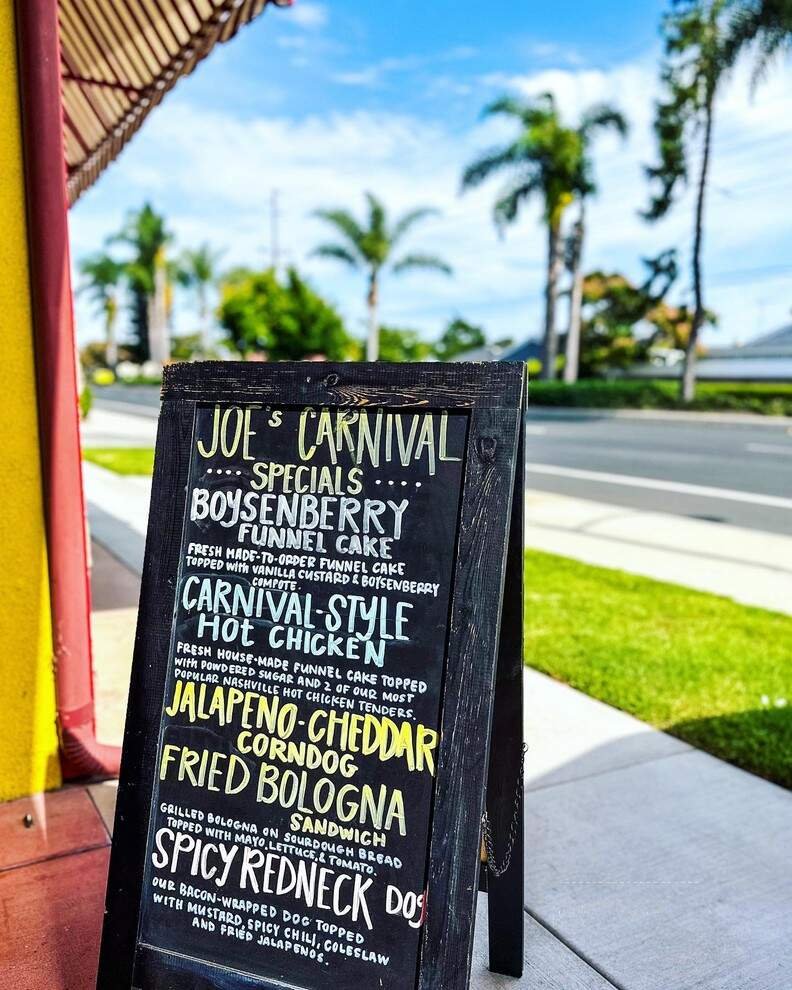 JOE's CARNIVAL
.... SPECIALS .....
BOYSENBERRY
FUNNEL CAKE
FRESH MADE-TO-ORDER FUNNEL CAKE
TOPPED with VANILLA CUSTARD & BOYSENBERRY
COMPOTE.
CARNIVAL-STYLE
Hot CHICKEN
FRESH HOUSE-MADE FUNNEL CAKE TOPPED
with POWDERED SUGAR AND 2 OF OUR MOST
POPULAR NASHVILLE HOT CHICKEN TENDERS.
JALAPENO-CHEDDAR
CORNDOG
FRIED BOLOGNA
SANDWICH
GRILLED BOLOGNA ON SOURDOUGH BREAD
TOPPED WITH MAYO, LETTUCE, & TOMATO.
SPICY REDNECK DOg
OUR BACON-WRAPPED DOG TOPPED
WITH MUSTARD, SPICY CHILI, COLESLAW
AND FRIED JALAPENOS.